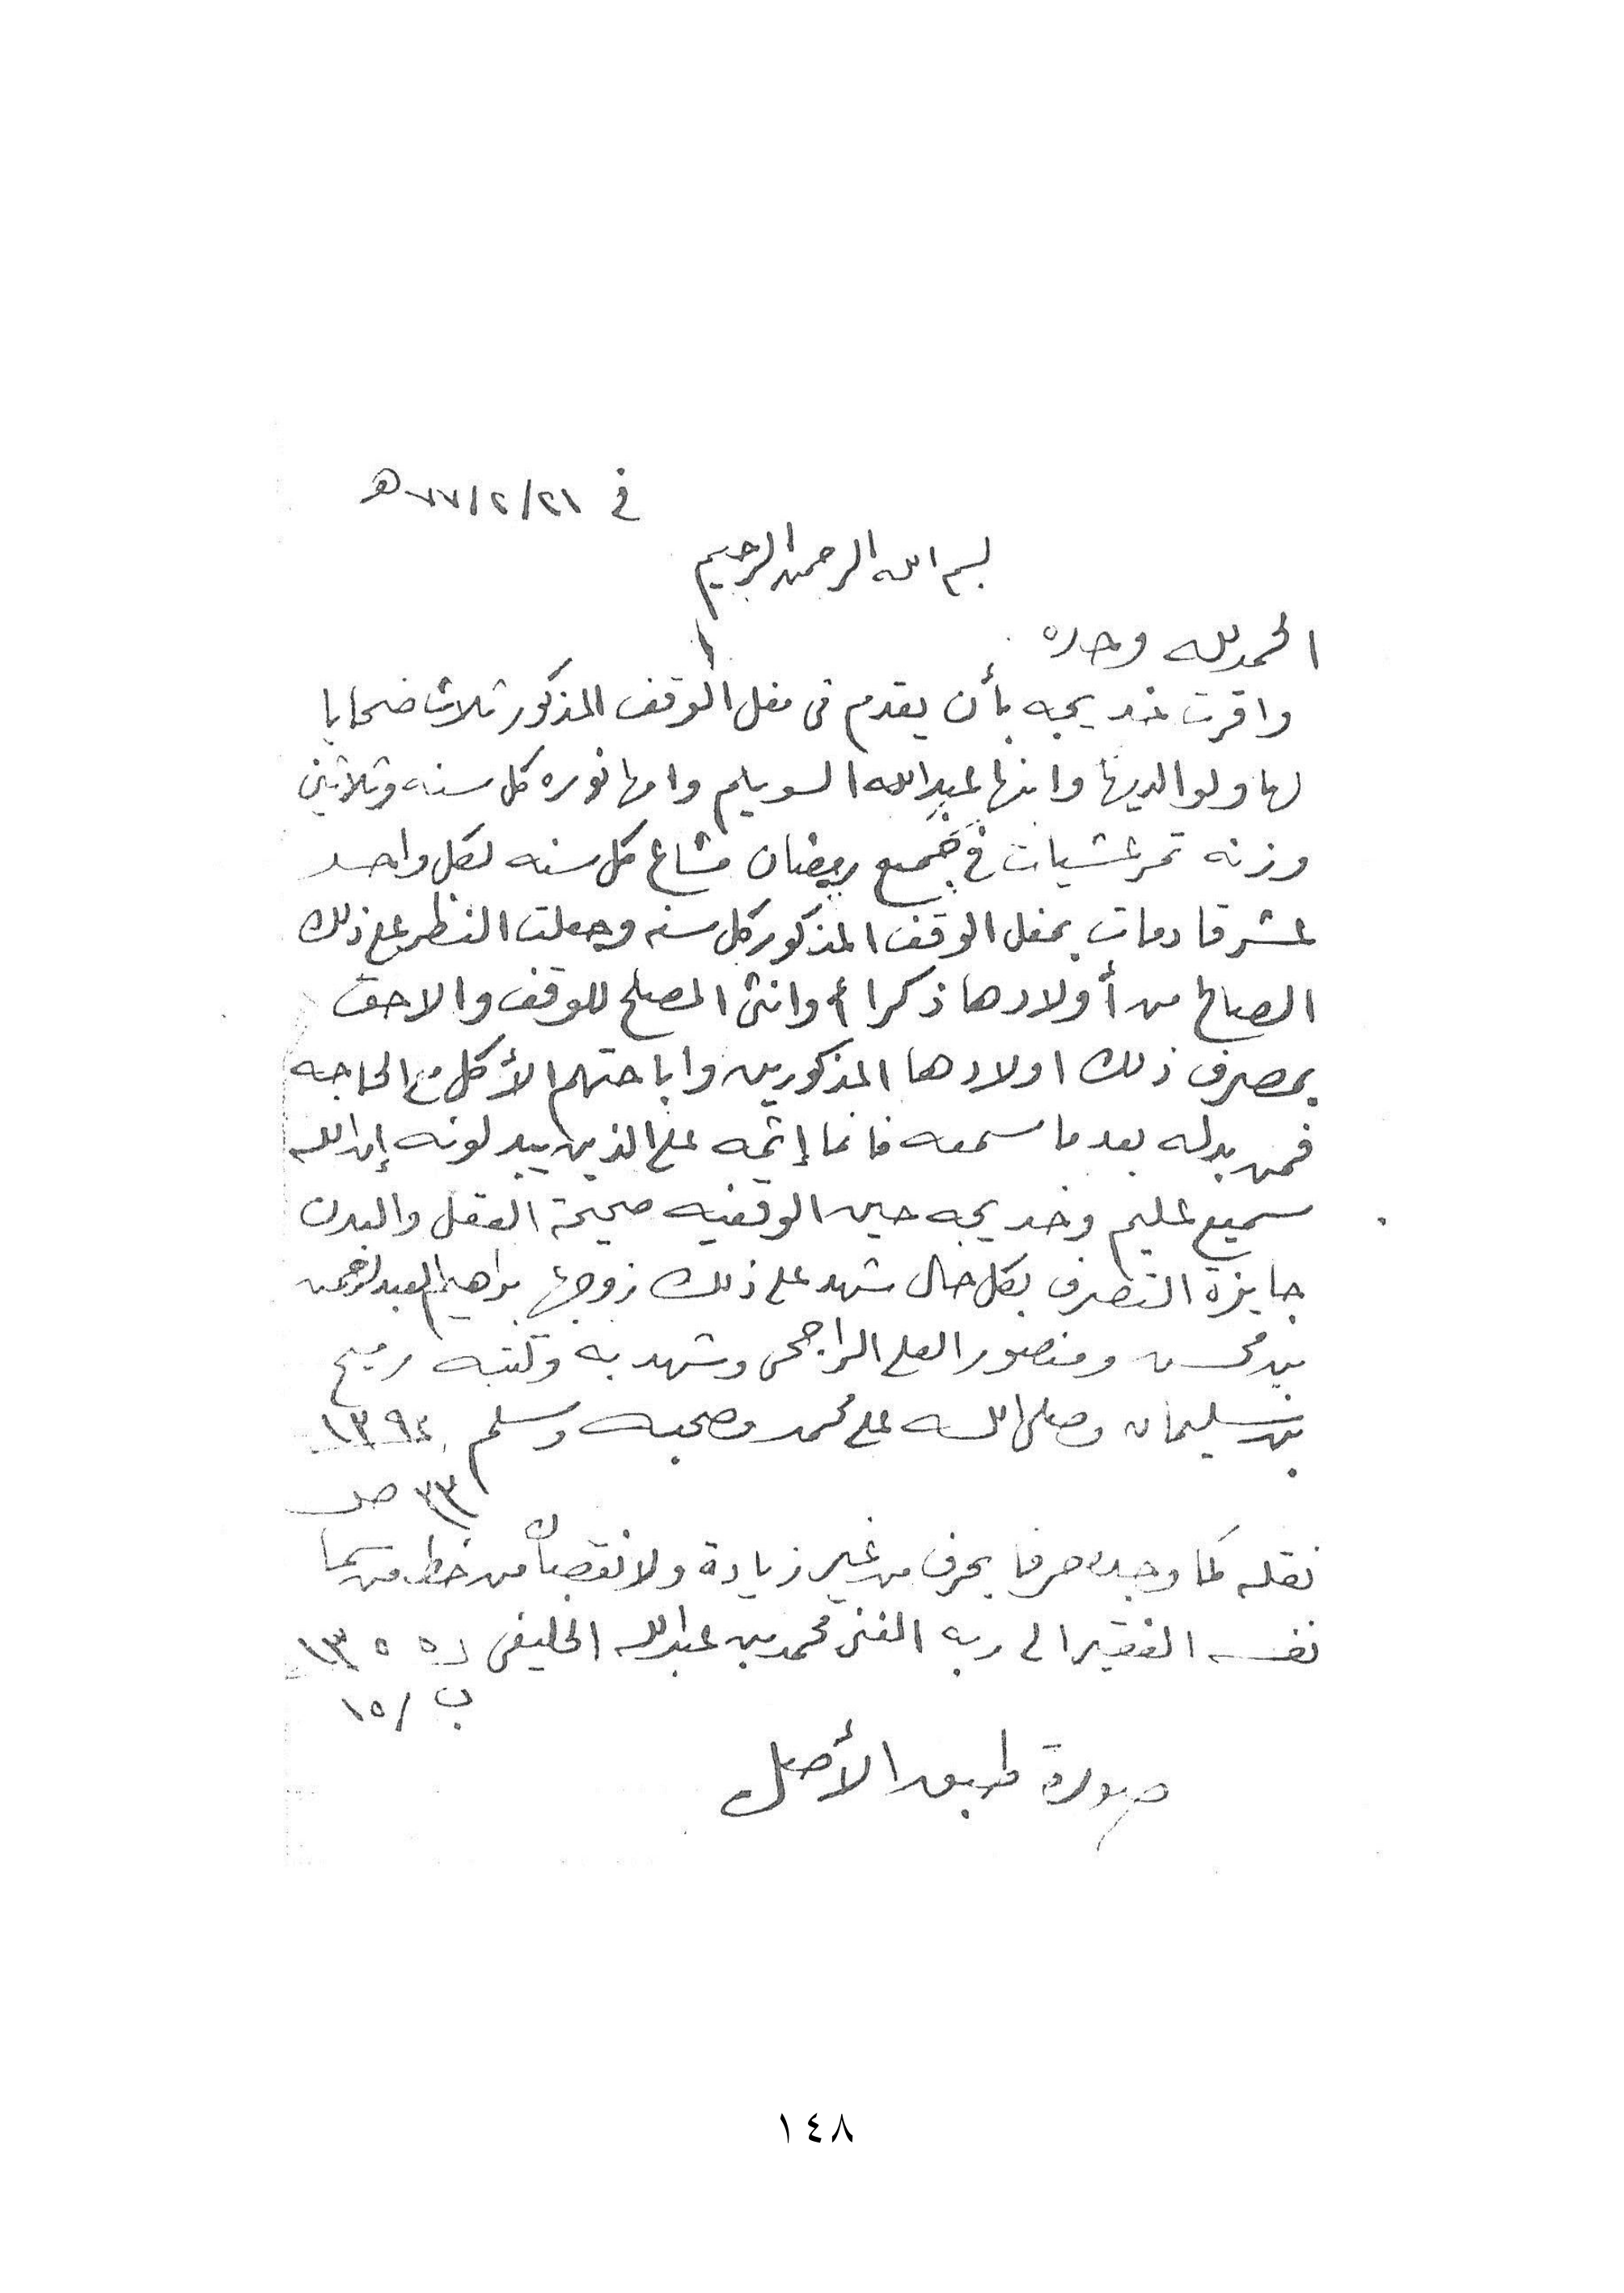 في ٢١/٢/٧٧هـ
بسم الله الرحمن الرحيم
الحمد لله وحده
واقرت خديجه بأن يقدم في مغل الوقف المذكور ثلاث ضحايا
لها ولوالديها وابنها عبدالله السويلم وامها نوره كل سنه وثلاثين
وزنه تمر عشيات في جميع رمضان مشاع كل سنه لكل واحد
عشر قادمات بمغل الوقف المذكور كل سنه وجعلت النظر على ذلك
الصالح من أولادها ذكرا وانثى المصلح للوقف والاحق
بمصرف ذلك اولادها المذكورين واباحتهم الأكل مع الحاجه
فمن بدله بعدما سمعه فانما إثمه على الذين يبدلونه إن الله
سميع عليم وخديجه حين الوقفيه صحيحة العقل والبدن
جايزة التصرف بكل حال شهد على ذلك زوجها براهيم العبدالرحمن
بن محسن ومنصور العلي الراجحي وشهد به وكتبه رميح
بن سليمان وصلى الله على محمد وصحبه وسلم
٣٣ ص
نقله كما وجده حرفا بحرف من غير زيادة ولا نقصان من خط من سما
نفسه الفقير الى ربه الغني محمد بن عبدالله الخليفي ١٣٥٥
ب / ١٥
صورة طبق الأصل
١٤٨